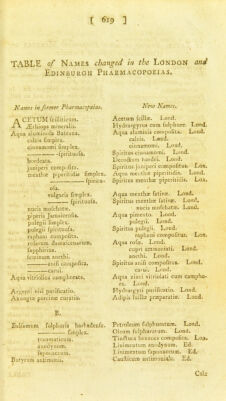 [ 619 ]
TABLE of NAMES changed in the LONDON and
EDINBURGH PHARMACOPOEIAS.
Names in former Pharmacopœias.
New Names.
ACETUM scilliticum.
Acetum scillæ. Lond.
Æthiops mineralis.
Hydrargyrus cum sulphure. Lond.
Aqua aluminosa Bateana.
Aqua aluminis composita. Lond.
calcis simplex.
calcis. Lond.
cinnamomi simplex.
cinnamomi. Lond.
spirituosa.
Spiritus cinnamomi. Lond.
hordeata.
Decoctum hordei. Lond.
juniperi composita.
Spiritus juniperi compositus. Lon.
menthæ piperitidis simplex.
Aqua menthæ piperitidis. Lond.
spirituosa.
Spiritus menthæ piperitidis. Lon.
vulgaris simplex.
Aqua menthæ sativæ. Lond.
spirituosa.
Spiritus menthæ sativæ. Lond.
nucis moschatæ.
nucis moschatæ. Lond.
piperis Jamaicensis.
Aqua pimento. Lond.
pulegii simplex.
pulegii. Lond.
pulegii spirituosa.
Spiritus pulegii. Lond.
raphani composita.
raphani compositus. Lon.
rosarum damascenarum.
Aqua rosæ. Lond.
sapphirina.
cupri ammoniati. Lond.
seminum anethi.
anethi. Lond.
anisi composita.
Spiritus anisi compositus. Lond.
carui.
carui. Lond.
Aqua vitriolica camphorata.
Aqua zinci vitriolati cum camphora. Lond.
Argenti vivi purificatio.
Hydrargyri purificatio. Lond.
Axungiæ porcinæ curatio.
Adipis suillæ præparatio. Lond.
B.
Balsamum sulphuris barbadense.
Petroleum sulphuratum. Lond.
simplex.
Oleum sulphuratum. Lond.
traumaticum.
Tinctura benzoes composita. Lon.
anodynum.
Linimentum anodynum. Ed.
saponaceum.
Linimentum saponaceum. Ed.
Butyrum antimonii.
Causticum antimoniale. Ed.
Calx